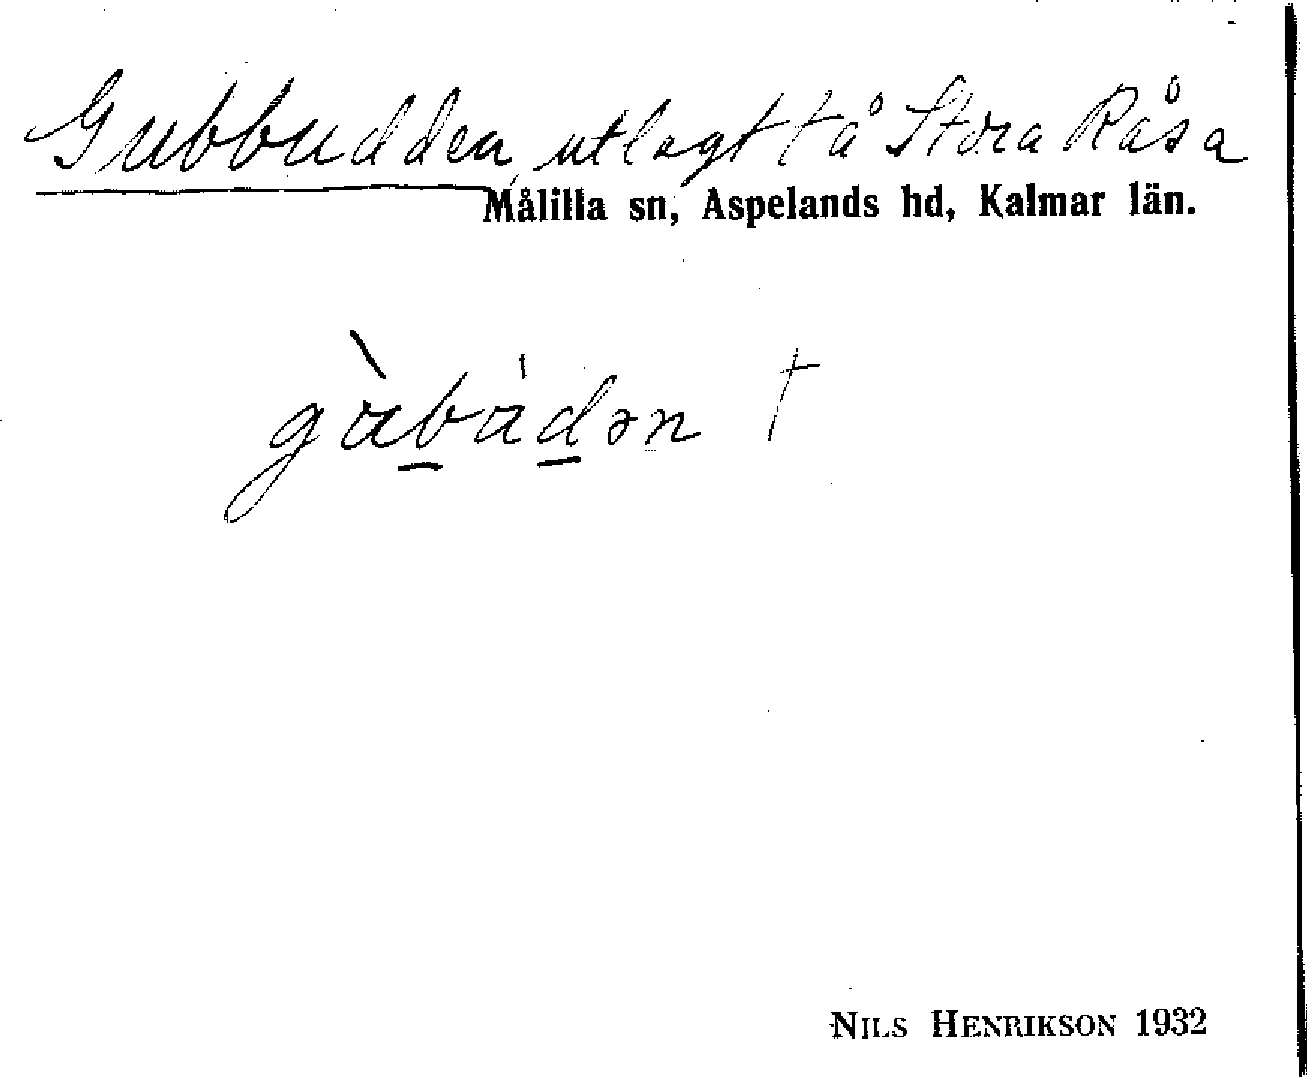 Gubbudden, utlagt † å Stora Råsa
Målilla sn, Aspelands hd, Kalmar län.
gàbádən †
NILS HENRIKSON 1932